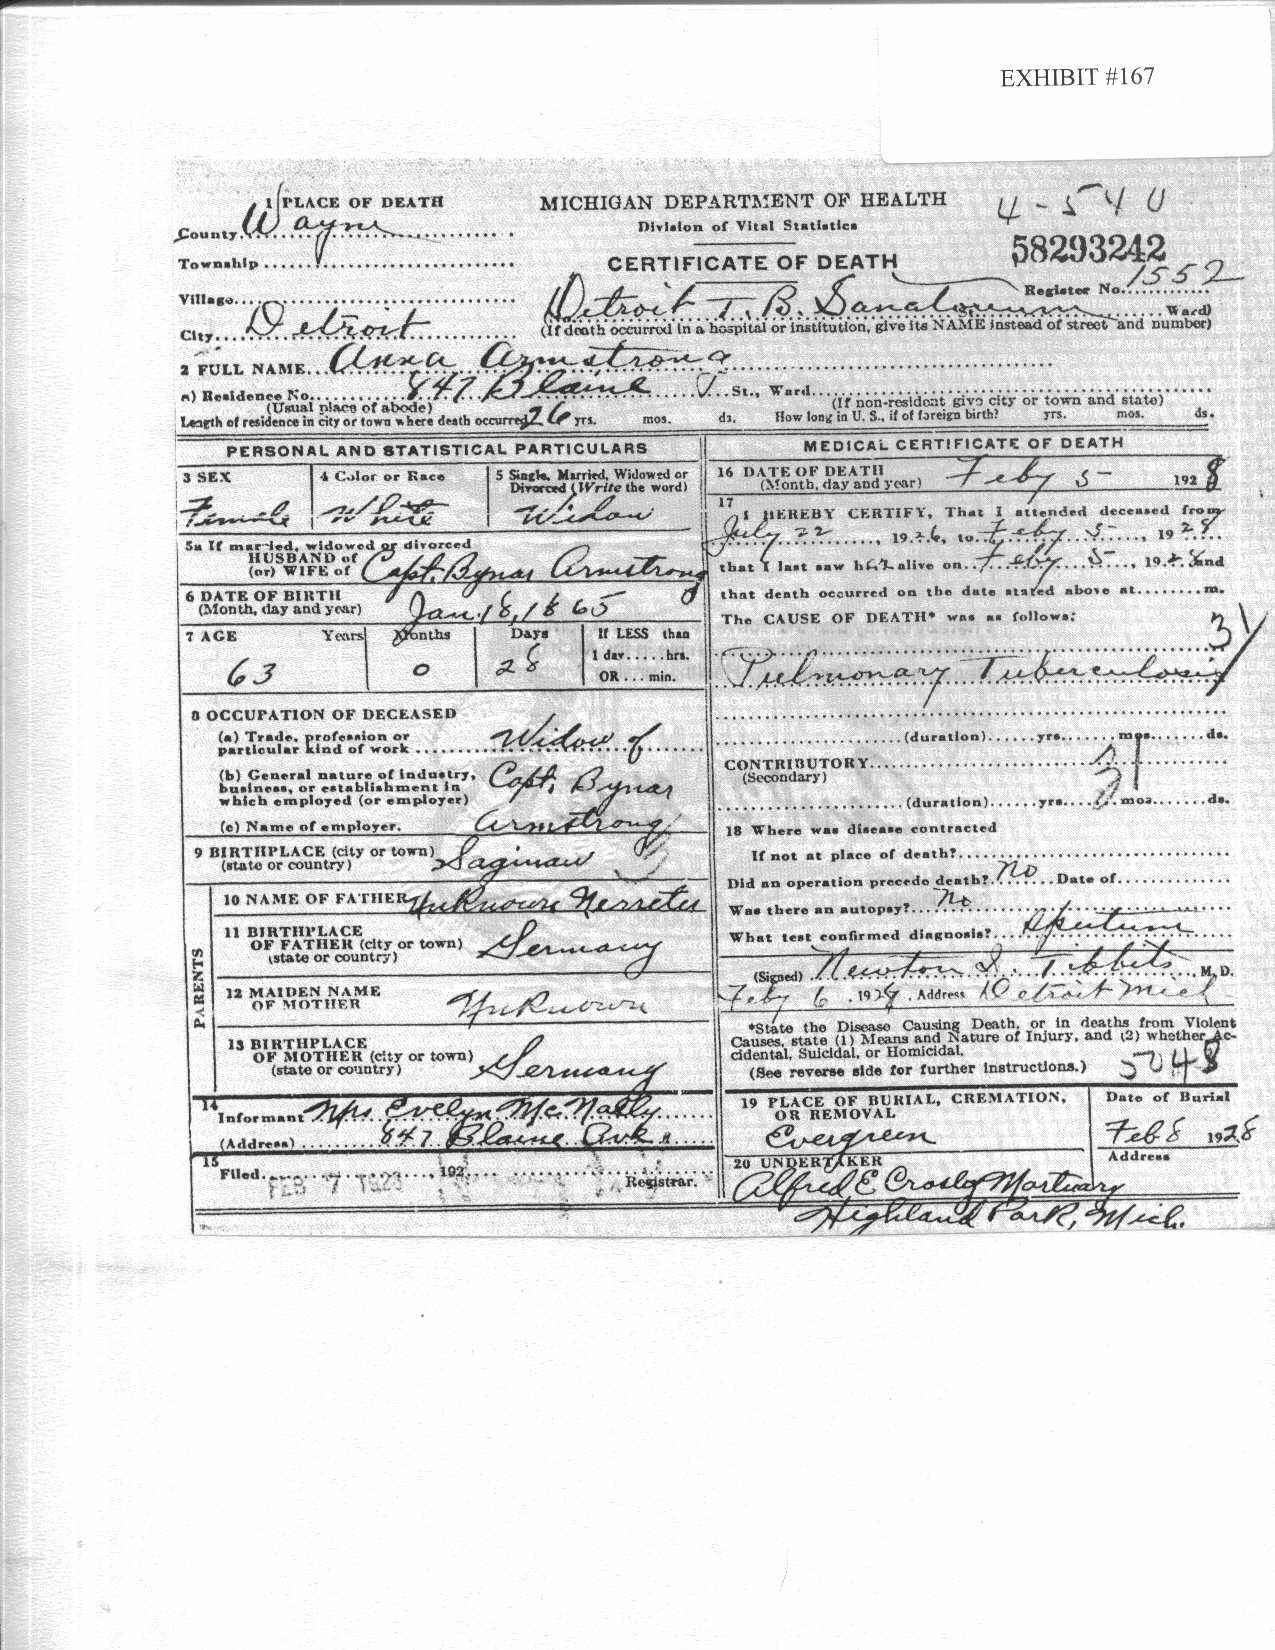 EXHIBIT #167
1 PLACE OF DEATH
MICHIGAN DEPARTMENT OF HEALTH
Division of Vital Statistics
4-540
County Wayne
58293242
Township
CERTIFICATE OF DEATH
Register No. 1552
Village
Detroit T. B. Sanatorium Ward)
City Detroit
(If death occurred in a hospital or institution, give its NAME instead of street and number)
2 FULL NAME Anna Armstrong
a) Residence No. 847 Blaine St., Ward
(Usual place of abode)
(If non-resident give city or town and state)
Length of residence in city or town where death occurred 26 yrs. mos. ds. How long in U. S., if of foreign birth? yrs. mos. ds.
PERSONAL AND STATISTICAL PARTICULARS
3 SEX
Female
4 Color or Race
White
5 Single, Married, Widowed or
Divorced (Write the word)
Widow
5a If married, widowed or divorced
HUSBAND of
(or) WIFE of Capt. Bynar Armstrong
6 DATE OF BIRTH
(Month, day and year) Jan. 18, 1865
7 AGE Years Months Days If LESS than
1 day.....hrs.
OR... min.
63 0 28
8 OCCUPATION OF DECEASED
(a) Trade, profession or
particular kind of work Widow of
(b) General nature of industry,
business, or establishment in
which employed (or employer) Capt. Bynar
(c) Name of employer. Armstrong
9 BIRTHPLACE (city or town)
(state or country) Saginaw
PARENTS
10 NAME OF FATHER Unknown Nerreter
11 BIRTHPLACE
OF FATHER (city or town)
(state or country) Germany
12 MAIDEN NAME
OF MOTHER Unknown
13 BIRTHPLACE
OF MOTHER (city or town)
(state or country) Germany
14
Informant Mrs. Evelyn McNally
(Address) 847 Blaine Ave
15
Filed FEB 7 192
Registrar.
MEDICAL CERTIFICATE OF DEATH
16 DATE OF DEATH
(Month, day and year) Feby 5 1928
17
I HEREBY CERTIFY, That I attended deceased from
July 22, 1926, to Feby 5, 1928
that I last saw her alive on Feby 5, 1928 and
that death occurred on the date stated above at........m.
The CAUSE OF DEATH* was as follows:
31
Pulmonary Tuberculosis
(duration)......yrs.......mos.......ds.
CONTRIBUTORY
(Secondary)
31
(duration)......yrs.......mos.......ds.
18 Where was disease contracted
If not at place of death?
Did an operation precede death? No Date of
Was there an autopsy? No
What test confirmed diagnosis? Sputum
(Signed) Newton S. Tibbits, M. D.
Feby 6, 1928, Address Detroit Mich
*State the Disease Causing Death, or in deaths from Violent
Causes, state (1) Means and Nature of Injury, and (2) whether Ac-
cidental, Suicidal, or Homicidal.
(See reverse side for further instructions.)
5048
19 PLACE OF BURIAL, CREMATION,
OR REMOVAL
Evergreen
Date of Burial
Feb 8 1928
20 UNDERTAKER
Address
Alfred E Crosby Mortuary
Highland Park, Mich.